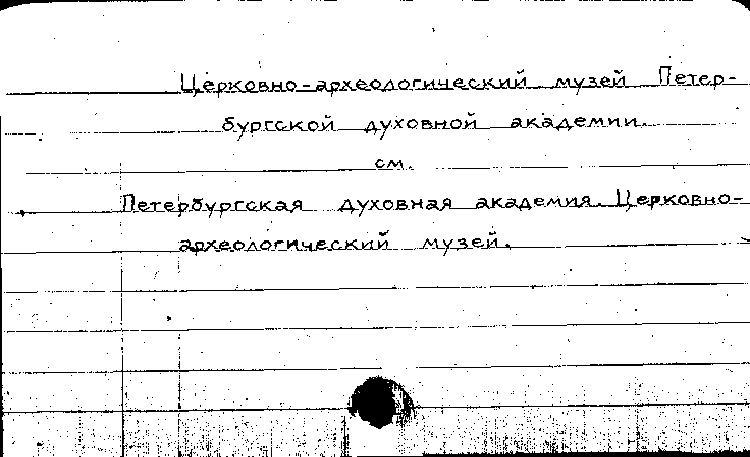 Церковно-археологический музей Петер-
бургской духовной академии.
см.
Петербургская духовная академия. Церковно-
археологический музей.